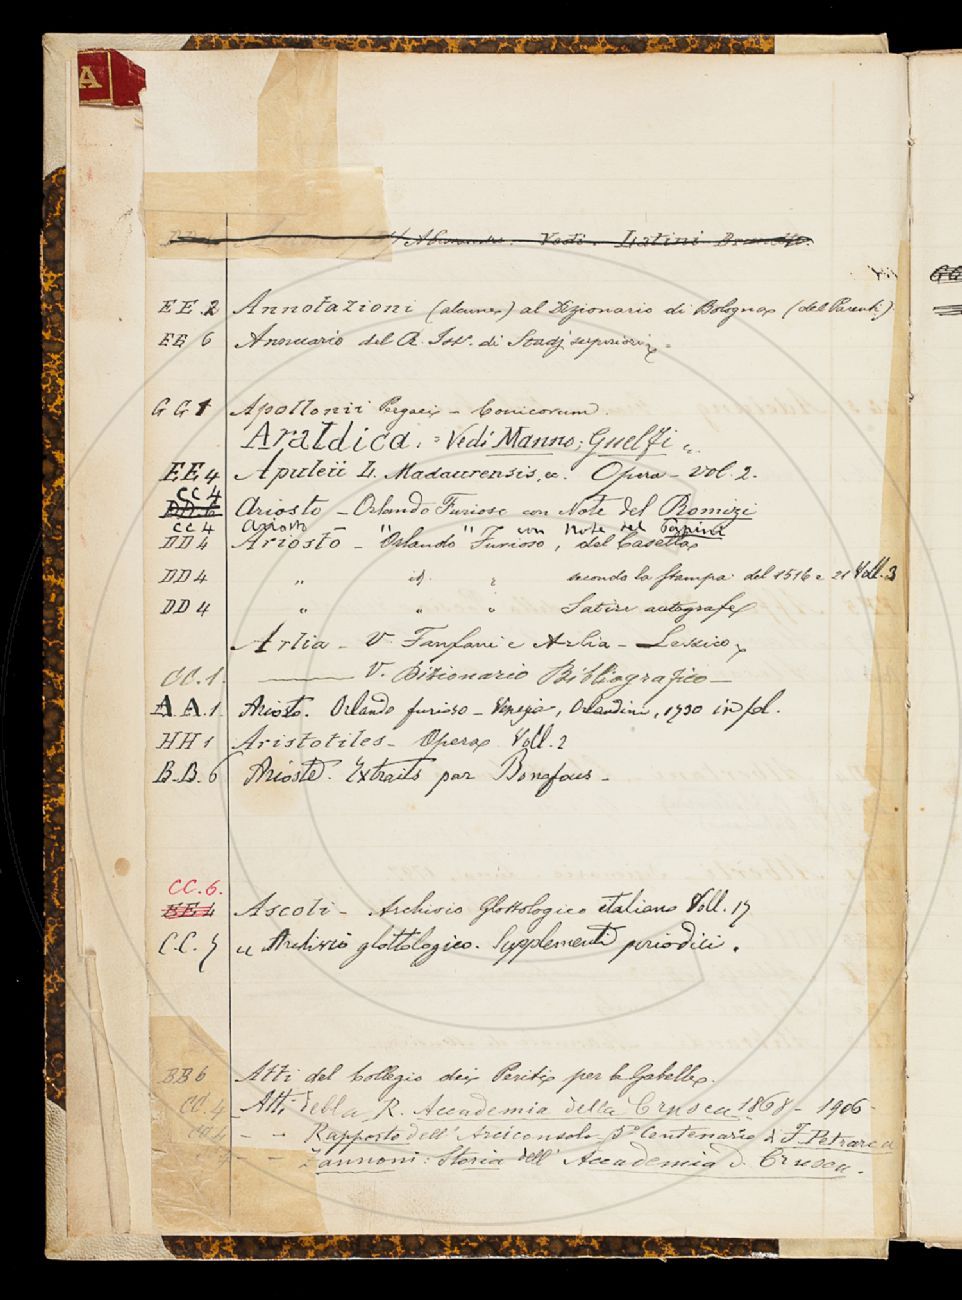 A
Vedi. Latini Brunetto.
EE.2 Annotazioni (alcune) al Dizionario di Bologna (del Parenti)
EE 6 Annuario del R. Ist. di Studj superiori
GG1 Apollonii Pergaei - Conicorum
Araldica. = Vedi Manno; Guelfi
EE 4 Apuleii L. Madaurensis, &. Opera - vol. 2.
CC 4
DD.6 Ariosto - Orlando Furioso con Note del Romizi
CC 4 Ariosto " " con Note del Papini
DD 4 Ariosto - Orlando Furioso, del Casella
DD4 " id. secondo la stampa del 1516 e 21 Voll. 3
DD 4 " " " Satire autografe
Arlia - V. Fanfani e Arlia - Lessico
CC.1. —— V. Dizionario Bibliografico -
AA.1 Ariosto. Orlando furioso - Venezia, Orlandini, 1730 in fol.
HH1 Aristotiles - Opera Voll. 2
B.B.6 Arioste. Extraits par Bonafous -
CC.6.
EE 4 Ascoli - Archivio Glottologico italiano Voll. 17
C.C.7 " Archivio glottologico. Supplementi periodici.
BB6 Atti del Collegio dei Periti per le Gabelle.
CC.4 Atti della R. Accademia della Crusca 1868 - 1906
CC4 - - Rapporto dell' Arciconsolo 5º Centenario di F. Petrarca
4 - - Zannoni: Storia dell' Accademia d. Crusca.
GG